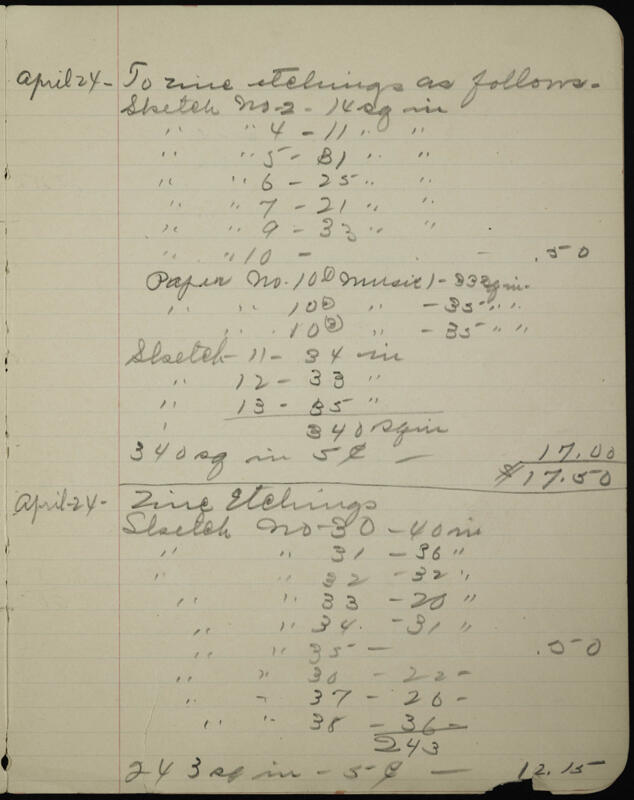 April 24- To zinc etchings as follows-
Sketch No-2 - 14 sq in
" " 4 - 11 " "
" " 5 - 31 " "
" " 6 - 25 " "
" " 7 - 21 " "
" " 9 - 33 " "
" " 10 - - .50
Paper No. 10① Music 1 - 33 sq in.
" " 10② " - 35 " "
" " 10③ " - 35 " "
Sketch - 11 - 34 in
" 12 - 33 "
" 13 - 35 "
" 340 sq in
340 sq in 5¢ — 17.00
$17.50
April-24- Zinc Etchings
Sketch No-30 - 40 in
" " 31 - 36 "
" " 32 - 32 "
" " 33 - 20 "
" " 34. - 31 "
" " 35 — .50
" " 36 - 22 -
" " 37 - 26 -
" " 38 - 36 -
243
243 sq in - 5¢ — 12.15